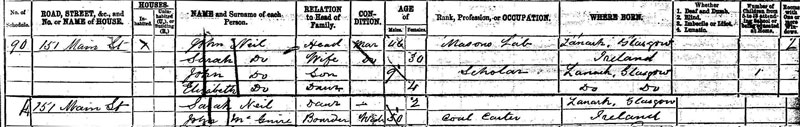 No. of Schedule. ROAD, STREET, &c., and No. or NAME of HOUSE. HOUSES. Inhabited Uninhabited (U.), or Building (B.) NAME and Surname of each Person. RELATION to Head of Family. CONDITION. AGE of Males. Females. Rank, Profession, or OCCUPATION. WHERE BORN. Whether 1. Deaf and Dumb. 2. Blind. 3. Imbecile or Idiot. 4. Lunatic.
90 151 Main St John Neil Head Mar 46 Masons Lab Lanark, Glasgow 1
Sarah Do Wife Do 30 Ireland
John Do Son 9 Scholar Lanark, Glasgow 1
Elizabeth Do Daur 4 Do Do
151 Main St Sarah Neil Daur 2 Lanark, Glasgow
John Boarder 50 Coal Carter Ireland